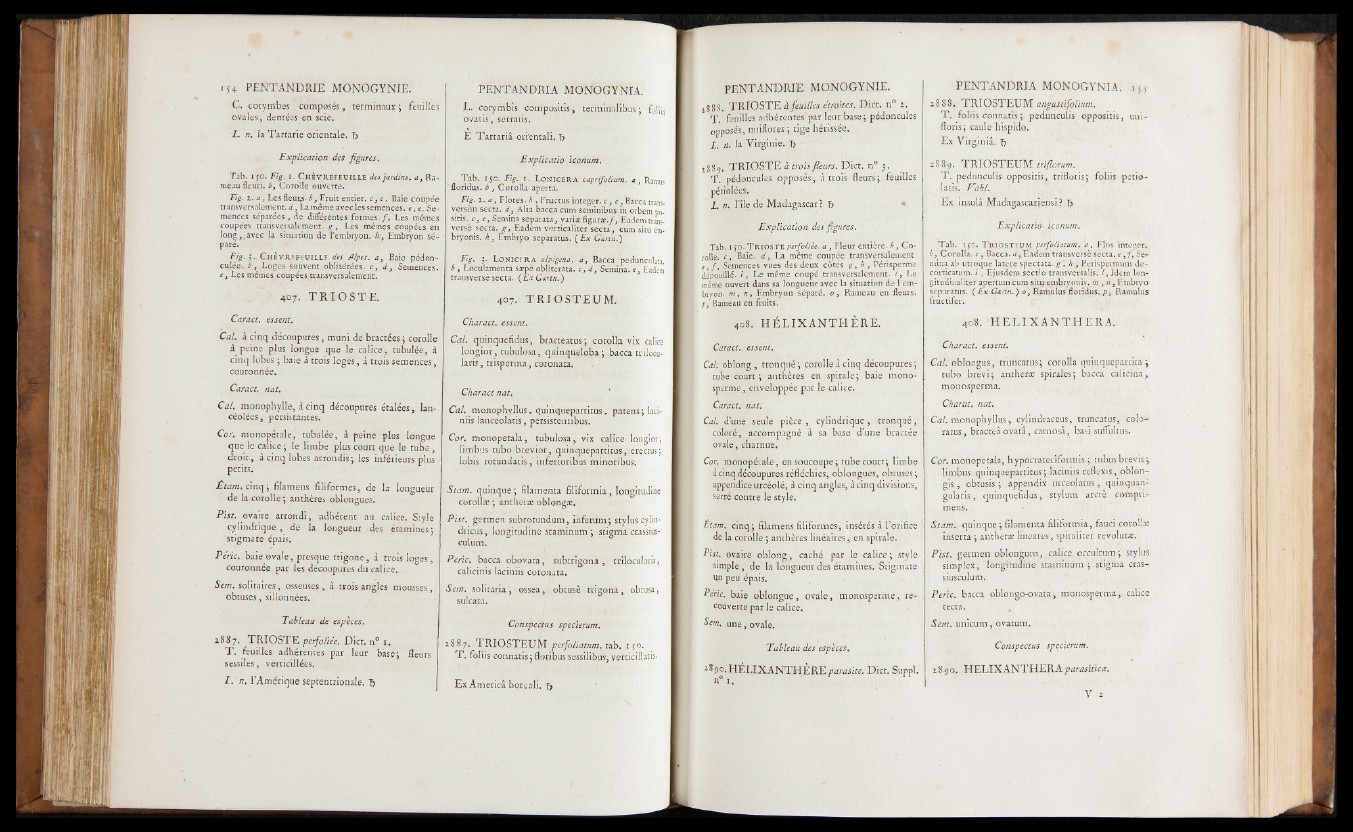 154 PENTANDRIE MONOGYNIE.
C. corymbes composés, terminaux; feuilles
ovales, dentées en scie.
L. n. la Tartarie orientale. ♄
Explication des figures.
Tab. 150. Fig. 1. CHÈVREFEUILLE des jardins. a, Ra-
meau fleuri. b, Corolle ouverte.
Fig. 2. a, Les fleurs. b, Fruit entier. c, c, Baie coupée
transversalement. d, La même avec les semences. e, e, Se-
mences séparées, de différentes formes. f, Les mêmes
coupées transversalement. g, Les mêmes coupées en
long, avec la situation de l'embryon. h, Embryon sé-
paré.
Fig. 3. CHÈVREFEUILLE des Alpes. a, Baie pédon-
culée. b, Loges souvent oblitérées. c, d, Semences.
e, Les mêmes coupées transversalement.
407. TRIOSTE.
Caract. essent.
Cal. à cinq découpures, muni de bractées; corolle
à peine plus longue que le calice, tubulée, à
cinq lobes; baie à trois loges, à trois semences,
couronnée.
Caract. nat.
Cal. monophylle, à cinq découpures étalées, lan-
céolées, persistantes.
Cor. monopétale, tubulée, à peine plus longue
que le calice; le limbe plus court que le tube,
droit, à cinq lobes arrondis; les inférieurs plus
petits.
Étam. cinq; filamens filiformes, de la longueur
de la corolle; anthères oblongues.
Pist. ovaire arrondi, adhérent au calice. Style
cylindrique, de la longueur des étamines;
stigmate épais.
Péric. baie ovale, presque trigone, à trois loges,
couronnée par les découpures du calice.
Sem. solitaires, osseuses, à trois angles mousses,
obtuses, sillonnées.
Tableau de espèces.
2887. TRIOSTE perfoliée. Dict. n° 1.
T. feuilles adhérentes par leur base; fleurs
sessiles, verticillées.
L. n. l'Amérique septentrionale. ♄
PENTANDRIA MONOGYNIA.
L. corymbis compositis, terminalibus; foliis
ovatis, serratis.
È Tartariâ orientali. ♄
Explicatio iconum.
Tab. 150. Fig. 1. LONICERA caprifolium. a, Ramus
floridus. b, Corolla aperta.
Fig. 2. a, Flores. b, Fructus integer. c, c, Bacca trans-
versim secta. d, Alia bacca cum seminibus in orbem po-
sitis. e, e, Semina separata, variæ figuræ. f, Eadem trans-
versè secta. g, Eadem verticaliter secta, cum situ em-
bryonis. h, Embryo separatus. (Ex Gærtn.)
Fig. 3. LONICERA alpigena. a, Bacca pedunculata.
b, Loculamenta sæpè obliterata. c, d, Semina. e, Eadem
transverse secta. (Ex Gærtn.)
407. TRIOSTEUM.
Charact. essent.
Cal. quinquefidus, bracteatus; corolla vix calice
longior, tubulosa, quinqueloba; bacca trilocu-
laris, trisperma, coronata.
Charact nat.
Cal. monophyllus, quinquepartitus, patens; laci-
niis lanceolatis, persistentibus.
Cor. monopetala, tubulosa, vix calice longior;
limbus tubo brevior, quinquepartitus, erectus;
lobis rotundatis, inferioribus minoribus.
Stam. quinque; filamenta filiformia, longitudine
corollæ; antheræ oblongæ.
Pist. germen subrotundum, inferum; stylus cylin-
dricus, longitudine staminum; stigma crassius-
culum.
Peric. bacca obovata, subtrigona, trilocularis,
calicinis laciniis coronata.
Sem. solitaria, ossea, obtusè trigona, obtusa,
sulcata.
Conspectus specierum.
2887. TRIOSTEUM perfoliatum. tab. 150.
T. foliis connatis; floribus sessilibus, verticillatis.
Ex Americâ boreali. ♄
PENTANDRIE MONOGYNIE.
2888. TRIOSTE à feuilles étroites. Dict. n° 2.
T. feuilles adhérentes par leur base; pédoncules
opposés, uniflores; tige hérissée.
L. n. la Virginie. ♄
2889. TRIOSTE à trois fleurs. Dict. n° 3.
T. pédoncules opposés, à trois fleurs; feuilles
pétiolées.
L. n. l'île de Madagascar? ♄
Explication des figures.
Tab. 150. TRIOSTE perfoliée. a, Fleur entière. b, Co-
rolle. c, Baie. d, La même coupée transversalement.
e, f, Semences vues des deux côtés. g, h, Périsperme
dépouillé. i, Le même coupé transversalement. l, Le
même ouvert dans sa longueur avec la situation de l'em-
bryon. m, n, Embryon séparé. o, Rameau en fleurs.
p, Rameau en fruits.
408. HÉLIXANTHÈRE.
Caract. essent.
Cal. oblong, tronqué; corolle à cinq découpures;
tube court; anthères en spirale; baie mono-
sperme, enveloppée par le calice.
Caract. nat.
Cal. d'une seule pièce, cylindrique, tronqué,
coloré, accompagné à sa base d'une bractée
ovale, charnue.
Cor. monopétale, en soucoupe; tube court; limbe
à cinq découpures réfléchies, oblongues, obtuses;
appendice urcéolé, à cinq angles, à cinq divisions,
serré contre le style.
Étam. cinq; filamens filiformes, insérés à l'orifice
de la corolle; anthères linéaires, en spirale.
Pist. ovaire oblong, caché par le calice; style
simple, de la longueur des étamines. Stigmate
un peu épais.
Péric. baie oblongue, ovale, monosperme, re-
couverte par le calice.
Sem. une, ovale.
Tableau des espèces.
2890. HÉLIXANTHÈRE parasite. Dict. Suppl.
n° 1.
PENTANDRIA MONOGYNIA. 155
2888. TRIOSTEUM angustifolium.
T. foliis connatis; pedunculis oppositis, uni-
floris; caule hispido.
Ex Virginiâ. ♄
2889. TRIOSTEUM triflorum.
T. pedunculis oppositis, triflotis; foliis petio-
latis. Vahl.
Ex insulâ Madagascariensi? ♄
Explicatio iconum.
Tab. 150. TRIOSTEUM perfoliatum. a, Flos integer.
b, Corolla. c, Bacca. d, Eadem transversè secta. e, f, Se-
mina ab utroque latere spectata. g, h, Perispermum de-
corticatum. i, Ejusdem sectio transversalis. l, Idem lon-
gitudinaliter apertum cum situ embryonis. m, n, Embryo
separatus. (Ex Gærtn.) o, Ramulus floridus. p, Ramulus
fructifer.
408. HELIXANTHERA.
Charact. essent.
Cal. oblongus, truncatus; corolla quinquepartita;
tubo brevi; antheræ spirales; bacca calicina,
monosperma.
Charat. nat.
Cal. monophyllus, cylindraceus, truncatus, colo-
ratus, bracteâ ovatâ, carnosâ, basi suffultus.
Cor. monopetala, hypocrateriformis; tubus brevis;
limbus quinquepartitus; laciniis reflexis, oblon-
gis, obtusis; appendix urceolatus, quinquan-
gularis, quinquefidus, stylum arctè compri-
mens.
Stam. quinque; filamenta filiformia, fauci corollæ
inserta; antheræ lineares, spiraliter revolutæ.
Pist. germen oblongum, calice occultum; stylus
simplex, longitudine staminum; stigma cras-
siusculum.
Peric. bacca oblongo-ovata, monosperma, calice
tecta.
Sem. unicum, ovatum.
Conspectus specierum.
2890. HELIXANTHERA parasitica.
V 2